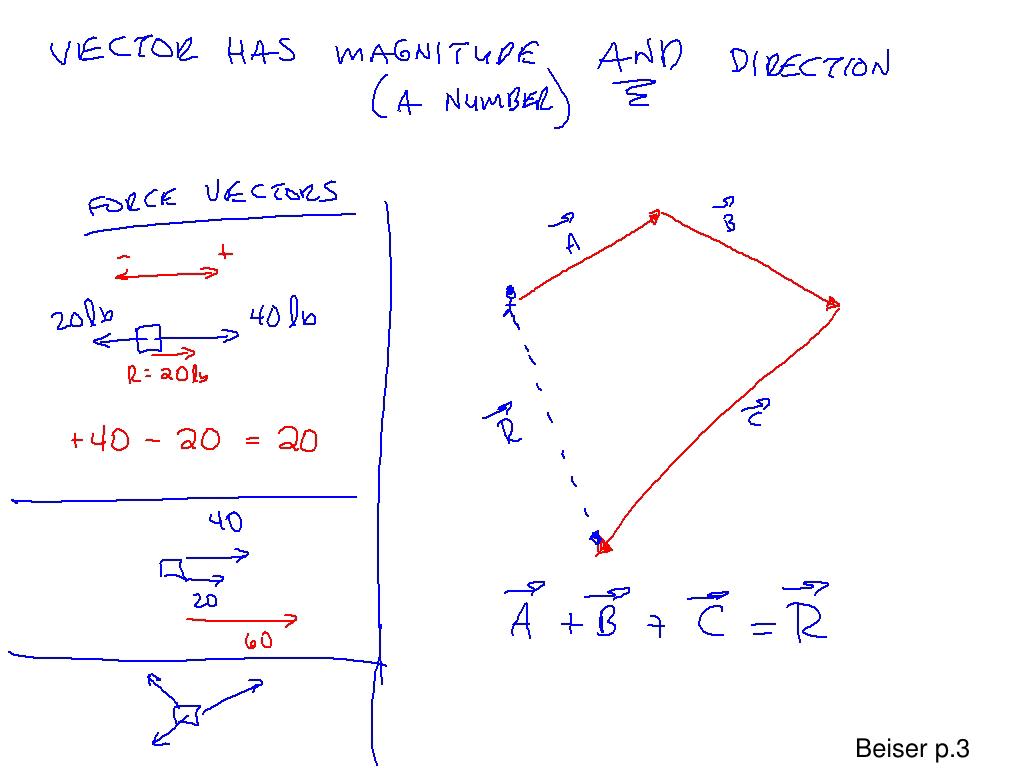 VECTOR HAS MAGNITUDE AND DIRECTION
(A NUMBER)
FORCE VECTORS
- +
20lb 40lb
R=20lb
+40 - 20 = 20
40
20
60
A
B
C
R
A + B + C = R
Beiser p.3